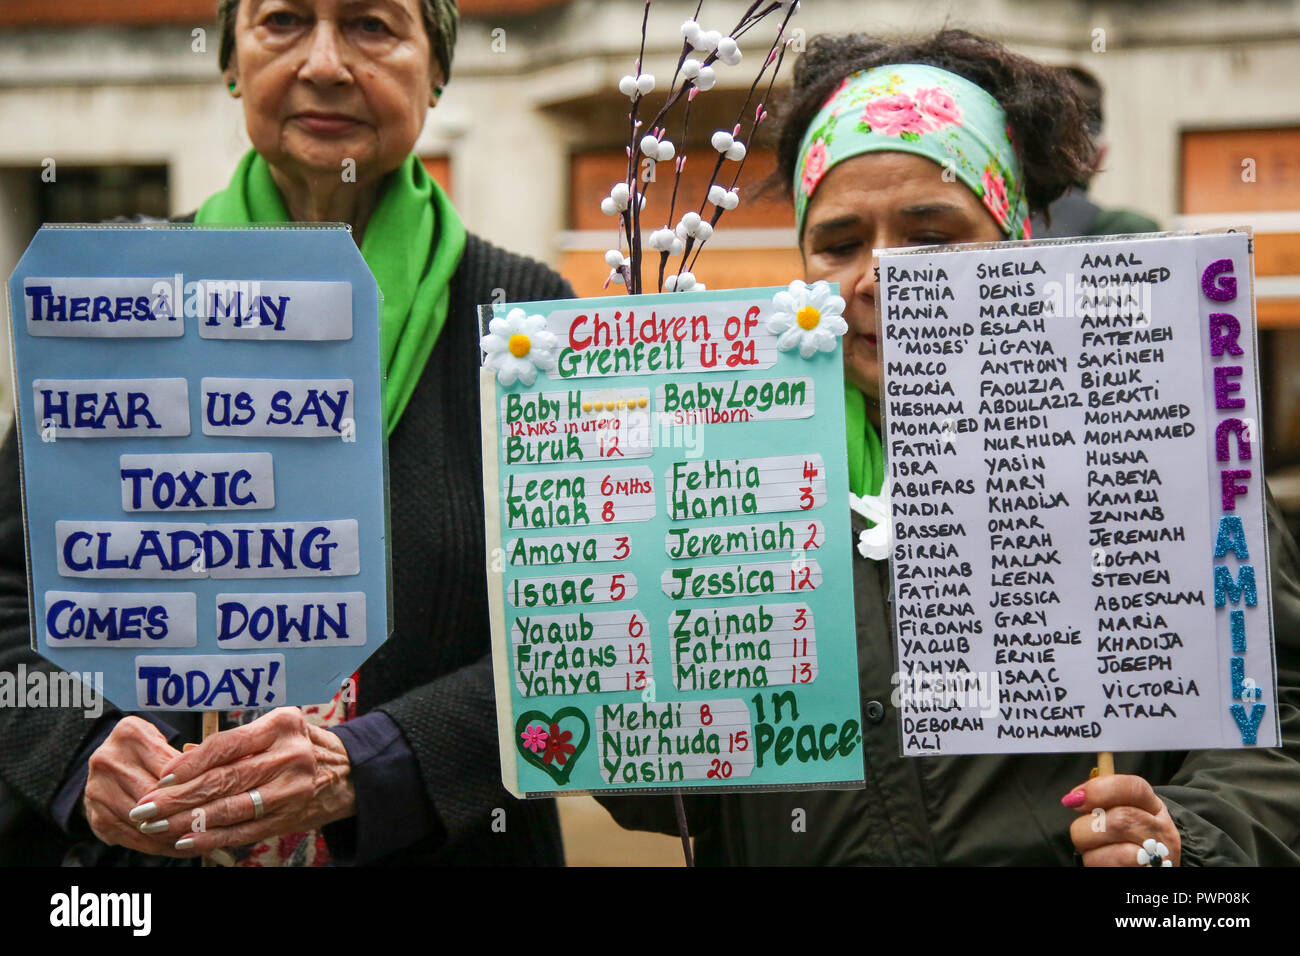 THERESA MAY
HEAR US SAY
TOXIC
CLADDING
COMES DOWN
TODAY!
Children of
Grenfell U.21
Baby H
12 WKS in utero
Biruk 12
Baby Logan
Stillborn.
Leena 6 Mths
Malak 8
Fethia 4
Hania 3
Amaya 3
Jeremiah 2
Isaac 5
Jessica 12
Yaqub 6
Firdaws 12
Yahya 13
Zainab 3
Fatima 11
Mierna 13
Mehdi 8
Nurhuda 15
Yasin 20
In
Peace.
RANIA
FETHIA
HANIA
RAYMOND
'MOSES'
MARCO
GLORIA
HESHAM
MOHAMED
FATHIA
ISRA
ABUFARS
NADIA
BASSEM
SIRRIA
ZAINAB
FATIMA
MIERNA
FIRDAWS
YAQUB
YAHYA
HASHIM
NURA
DEBORAH
ALI
SHEILA
DENIS
MARIEM
ESLAH
LIGAYA
ANTHONY
FAOUZIA
ABDULAZIZ
MEHDI
NURHUDA
YASIN
MARY
KHADIJA
OMAR
FARAH
MALAK
LEENA
JESSICA
GARY
MARJORIE
ERNIE
ISAAC
HAMID
VINCENT
MOHAMMED
AMAL
MOHAMED
AMNA
AMAYA
FATEMEH
SAKINEH
BIRUK
BERKTI
MOHAMMED
MOHAMMED
HUSNA
RABEYA
KAMRU
ZAINAB
JEREMIAH
LOGAN
STEVEN
ABDESALAM
MARIA
KHADIJA
JOSEPH
VICTORIA
ATALA
GRENFAMILY
alamy
Image ID: PWP08K
www.alamy.com